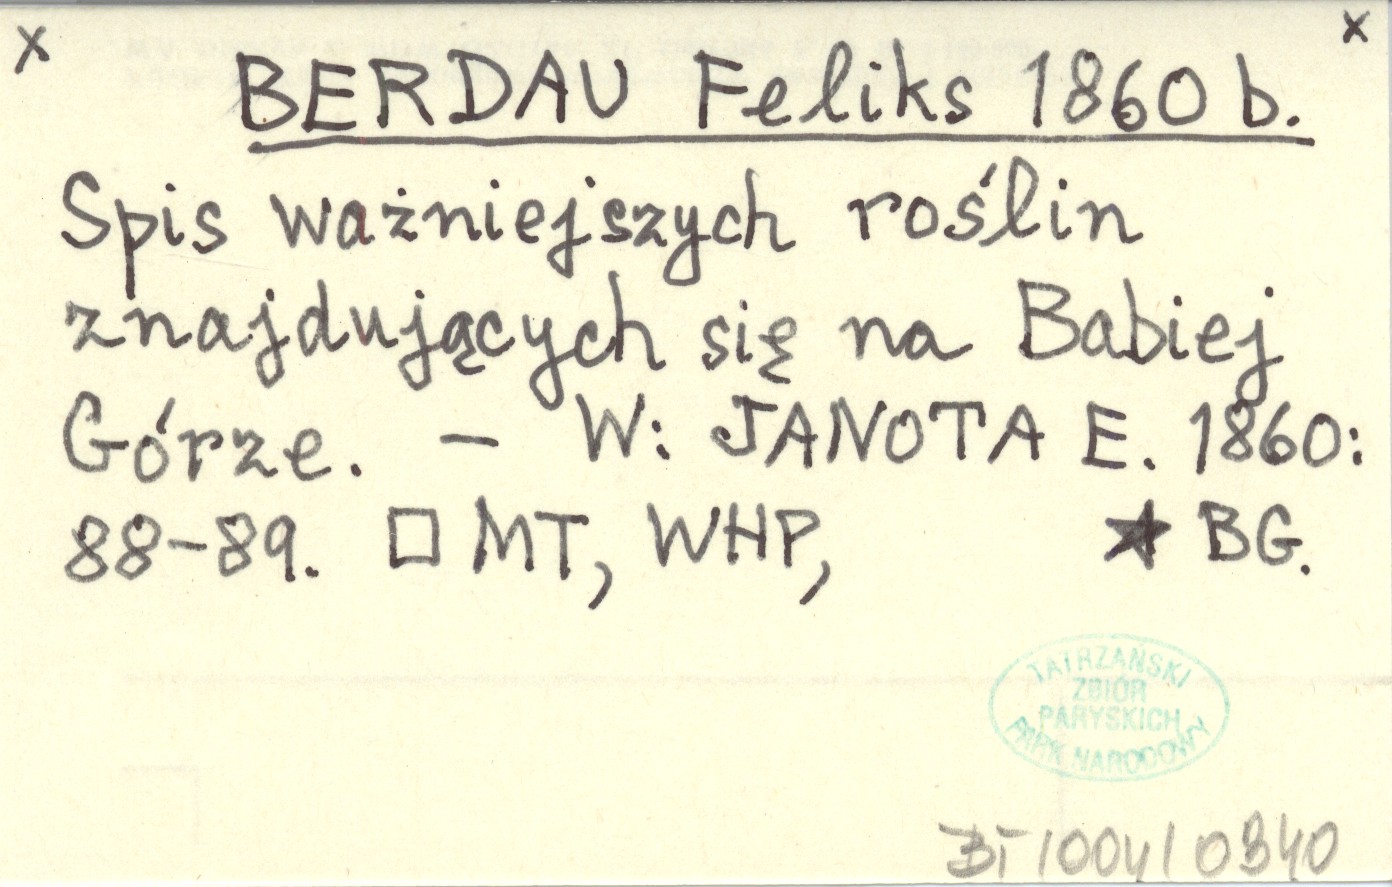 x x
BERDAU Feliks 1860 b.
Spis ważniejszych roślin
znajdujących się na Babiej
Górze. — W: JANOTA E. 1860:
88-89. □ MT, WHP, ★ BG.
TATRZAŃSKI
ZBIÓR
PARYSKICH
PARK NARODOWY
BT/004/0340